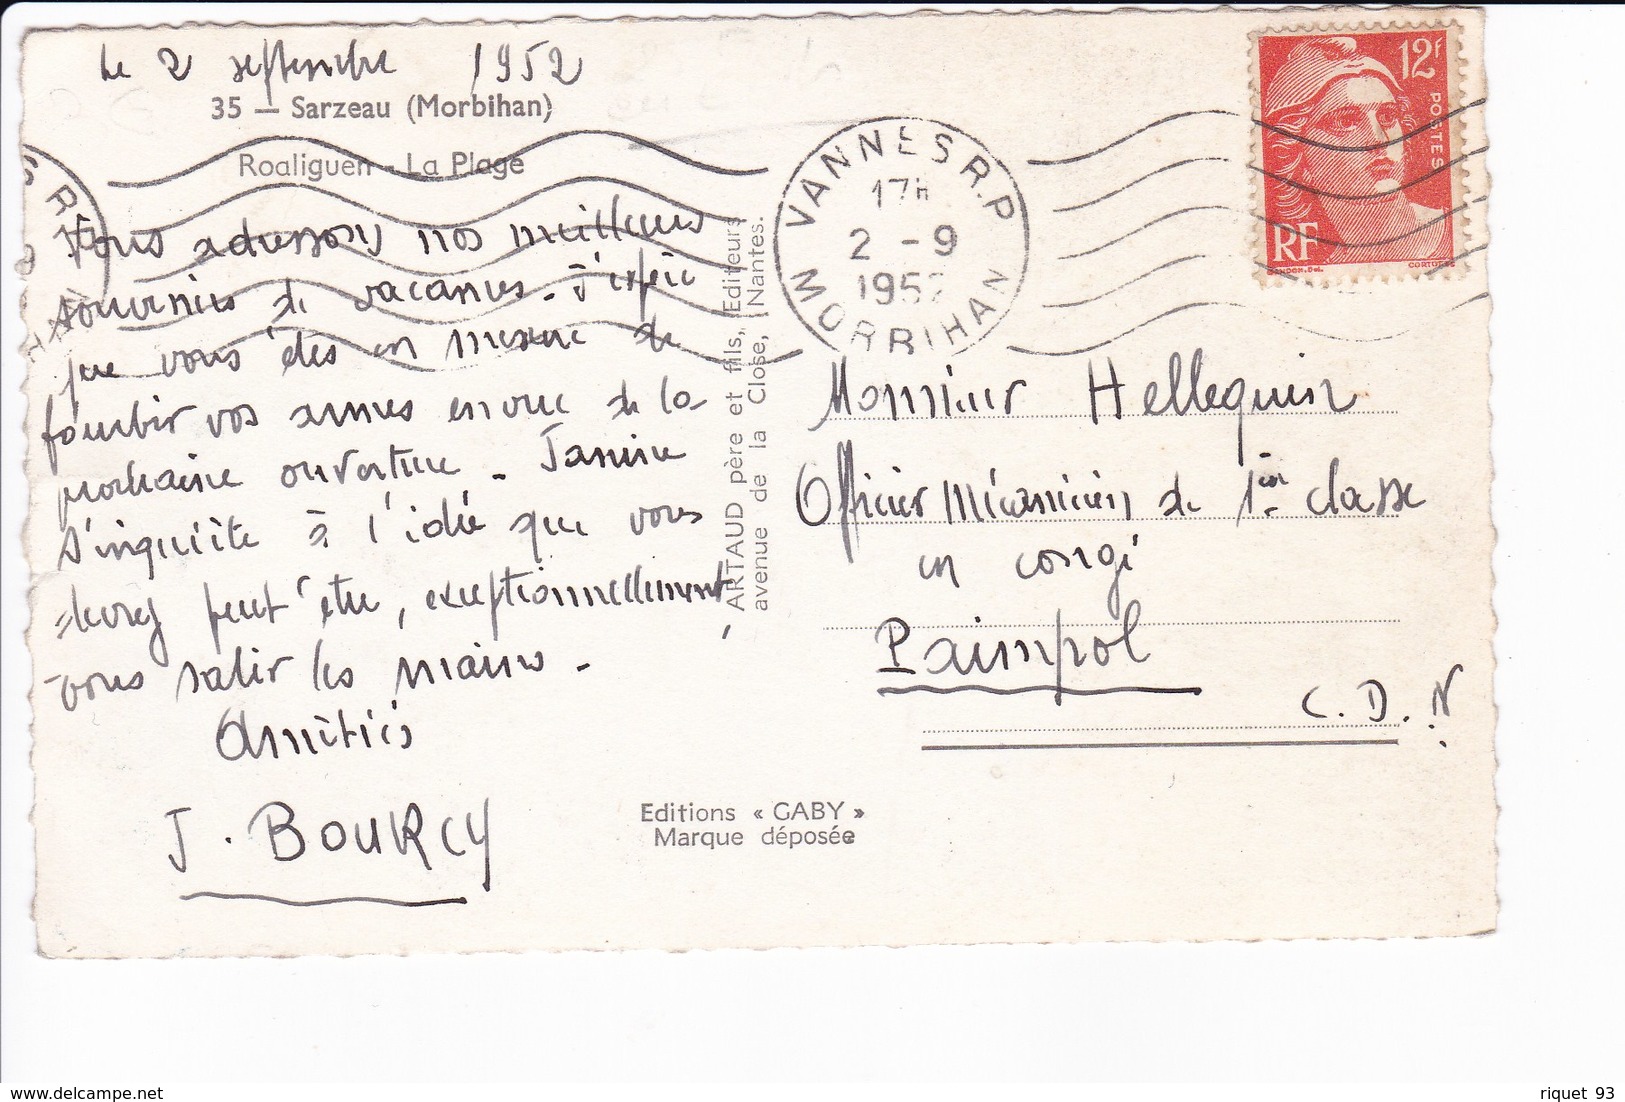 le 2 septembre 1952
35 — Sarzeau (Morbihan)
Roaliguen - La Plage
Vous adressons nos meilleurs
souvenirs de vacances - J'espère
que vous êtes en mesure de
fourbir vos armes en vue de la
prochaine ouverture - Janine
s'inquiète à l'idée que vous
devrez peut être, exceptionnellement,
vous salir les mains -
Amitiés
J. BOURCY
ARTAUD père et fils, Editeurs
avenue de la Close, Nantes.
Editions « GABY »
Marque déposée
VANNES R.P
17H
2 - 9
1952
MORBIHAN
12F
POSTES
RF
GANDON. Del.
CORTOT SC
Monsieur Hellequin
Officier Mécanicien de 1ère classe
en congé
Paimpol
C. D. N
riquet 93